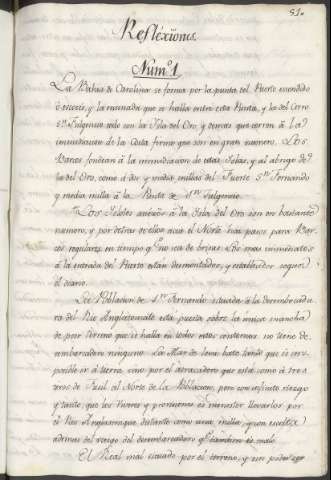 51.
Reflêxiones.
Num.º 1
La Bahia de Carolina se forma por la punta del Fuerte escondido
ó envès, y la ensenada que se halla entre esta Punta, y la del Cerro
S.n Fulgencio todo con la Isla del Oro, y demas que corren à la
inmediacion de la Costa firme que son en gran numero. Los
Barcos fondean à la inmediacion de estas Islas, y al abrigo de
la del Oro, como à dos y media millas del Fuerte S.n Fernando
y media milla à la Punta de S.n Fulgencio.
Los Islotes anexôs à la Isla del Oro son en bastante
numero, y por detras de ellos acia el Norte hai pasos para Bar-
cos regulares en tiempo que no sea de brisas. Los mas inmediatos
à la entrada del Puerto están desmontados, y
el diario.
La Poblacion de S.n Fernando situada à la desembocadu-
ra del Rio està puesta sobre la unica mancha
de poco terreno que se halla en todos estos contornos no tiene de-
sembarcadero ninguno. La Mar de leva bate tanto que es im-
posible ir à tierra sino por el atracadero que està como à tres
tiros de Fusil al Norte de la Poblacion, pero con infinito riesgo
y tanto, que los Viveres y provisiones es menester llevarlos por
el Rio distante como una milla, y con
ademas del riesgo del desembarcadero que tambien es malo.
El Real mal situado por el terreno, y sin poder